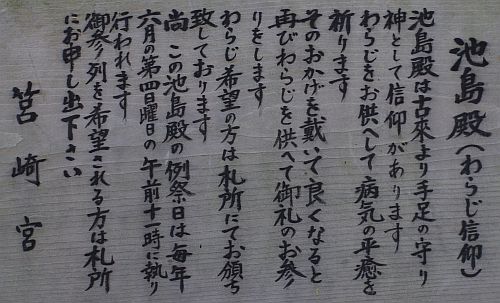 池島殿(わらじ信仰)
池島殿は古来より手足の守り
神として信仰があります
わらじをお供へして病気の平癒を
祈ります
そのおかげを戴いて良くなると
再びわらじを供へて御礼のお参
りをします
わらじ希望の方は札所にてお頒ち
致しております
尚 この池島殿の例祭日は毎年
六月の第四日曜日の午前十一時に執り
行われます
御参列を希望される方は札所
にお申し出下さい
筥崎宮